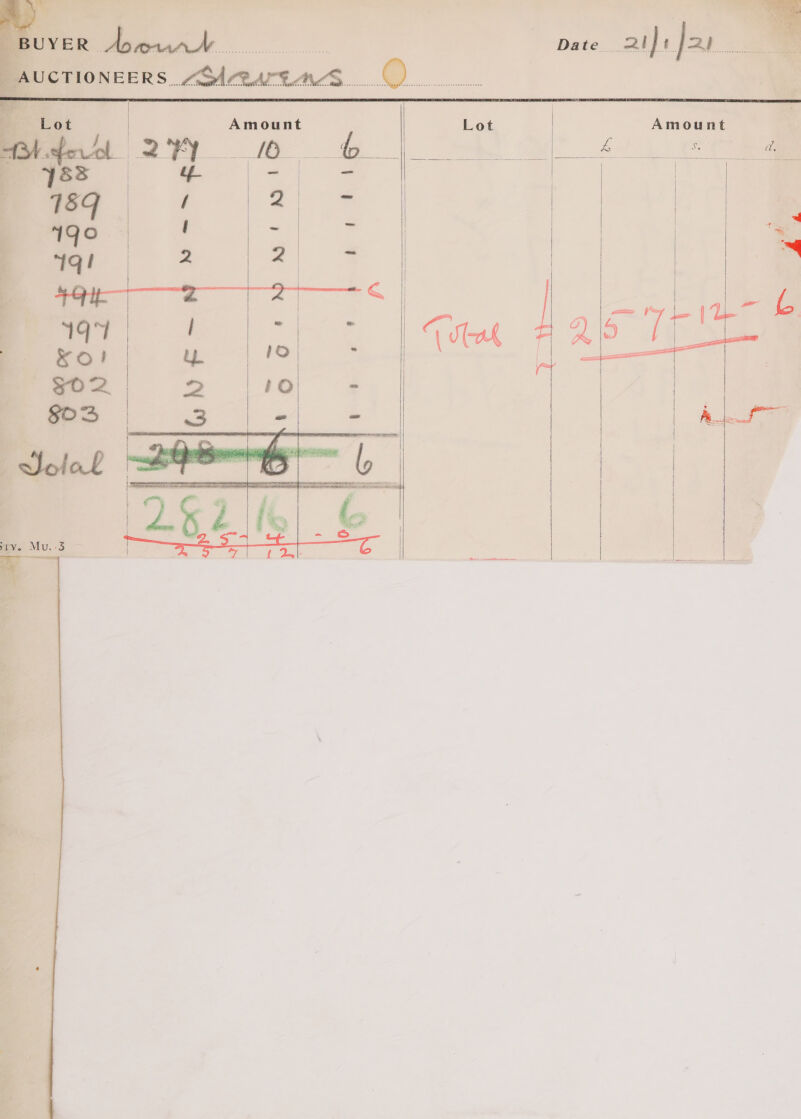 BUYER Court Date 21/1/21
AUCTIONEERS Stevens
Lot Amount Lot Amount
£ s. d.
Bt. for'd 277 10 6
788 4 - -
789 1 2 -
790 1 - -
791 2 2 -
794 2 2 -
797 1 - -
801 4 10 -
802 2 10 -
803 3 - -
Total £ 257-12-6
Total 298 6 6
282 16 6
25-4-0
257 12 6
Sty. Mu. 3